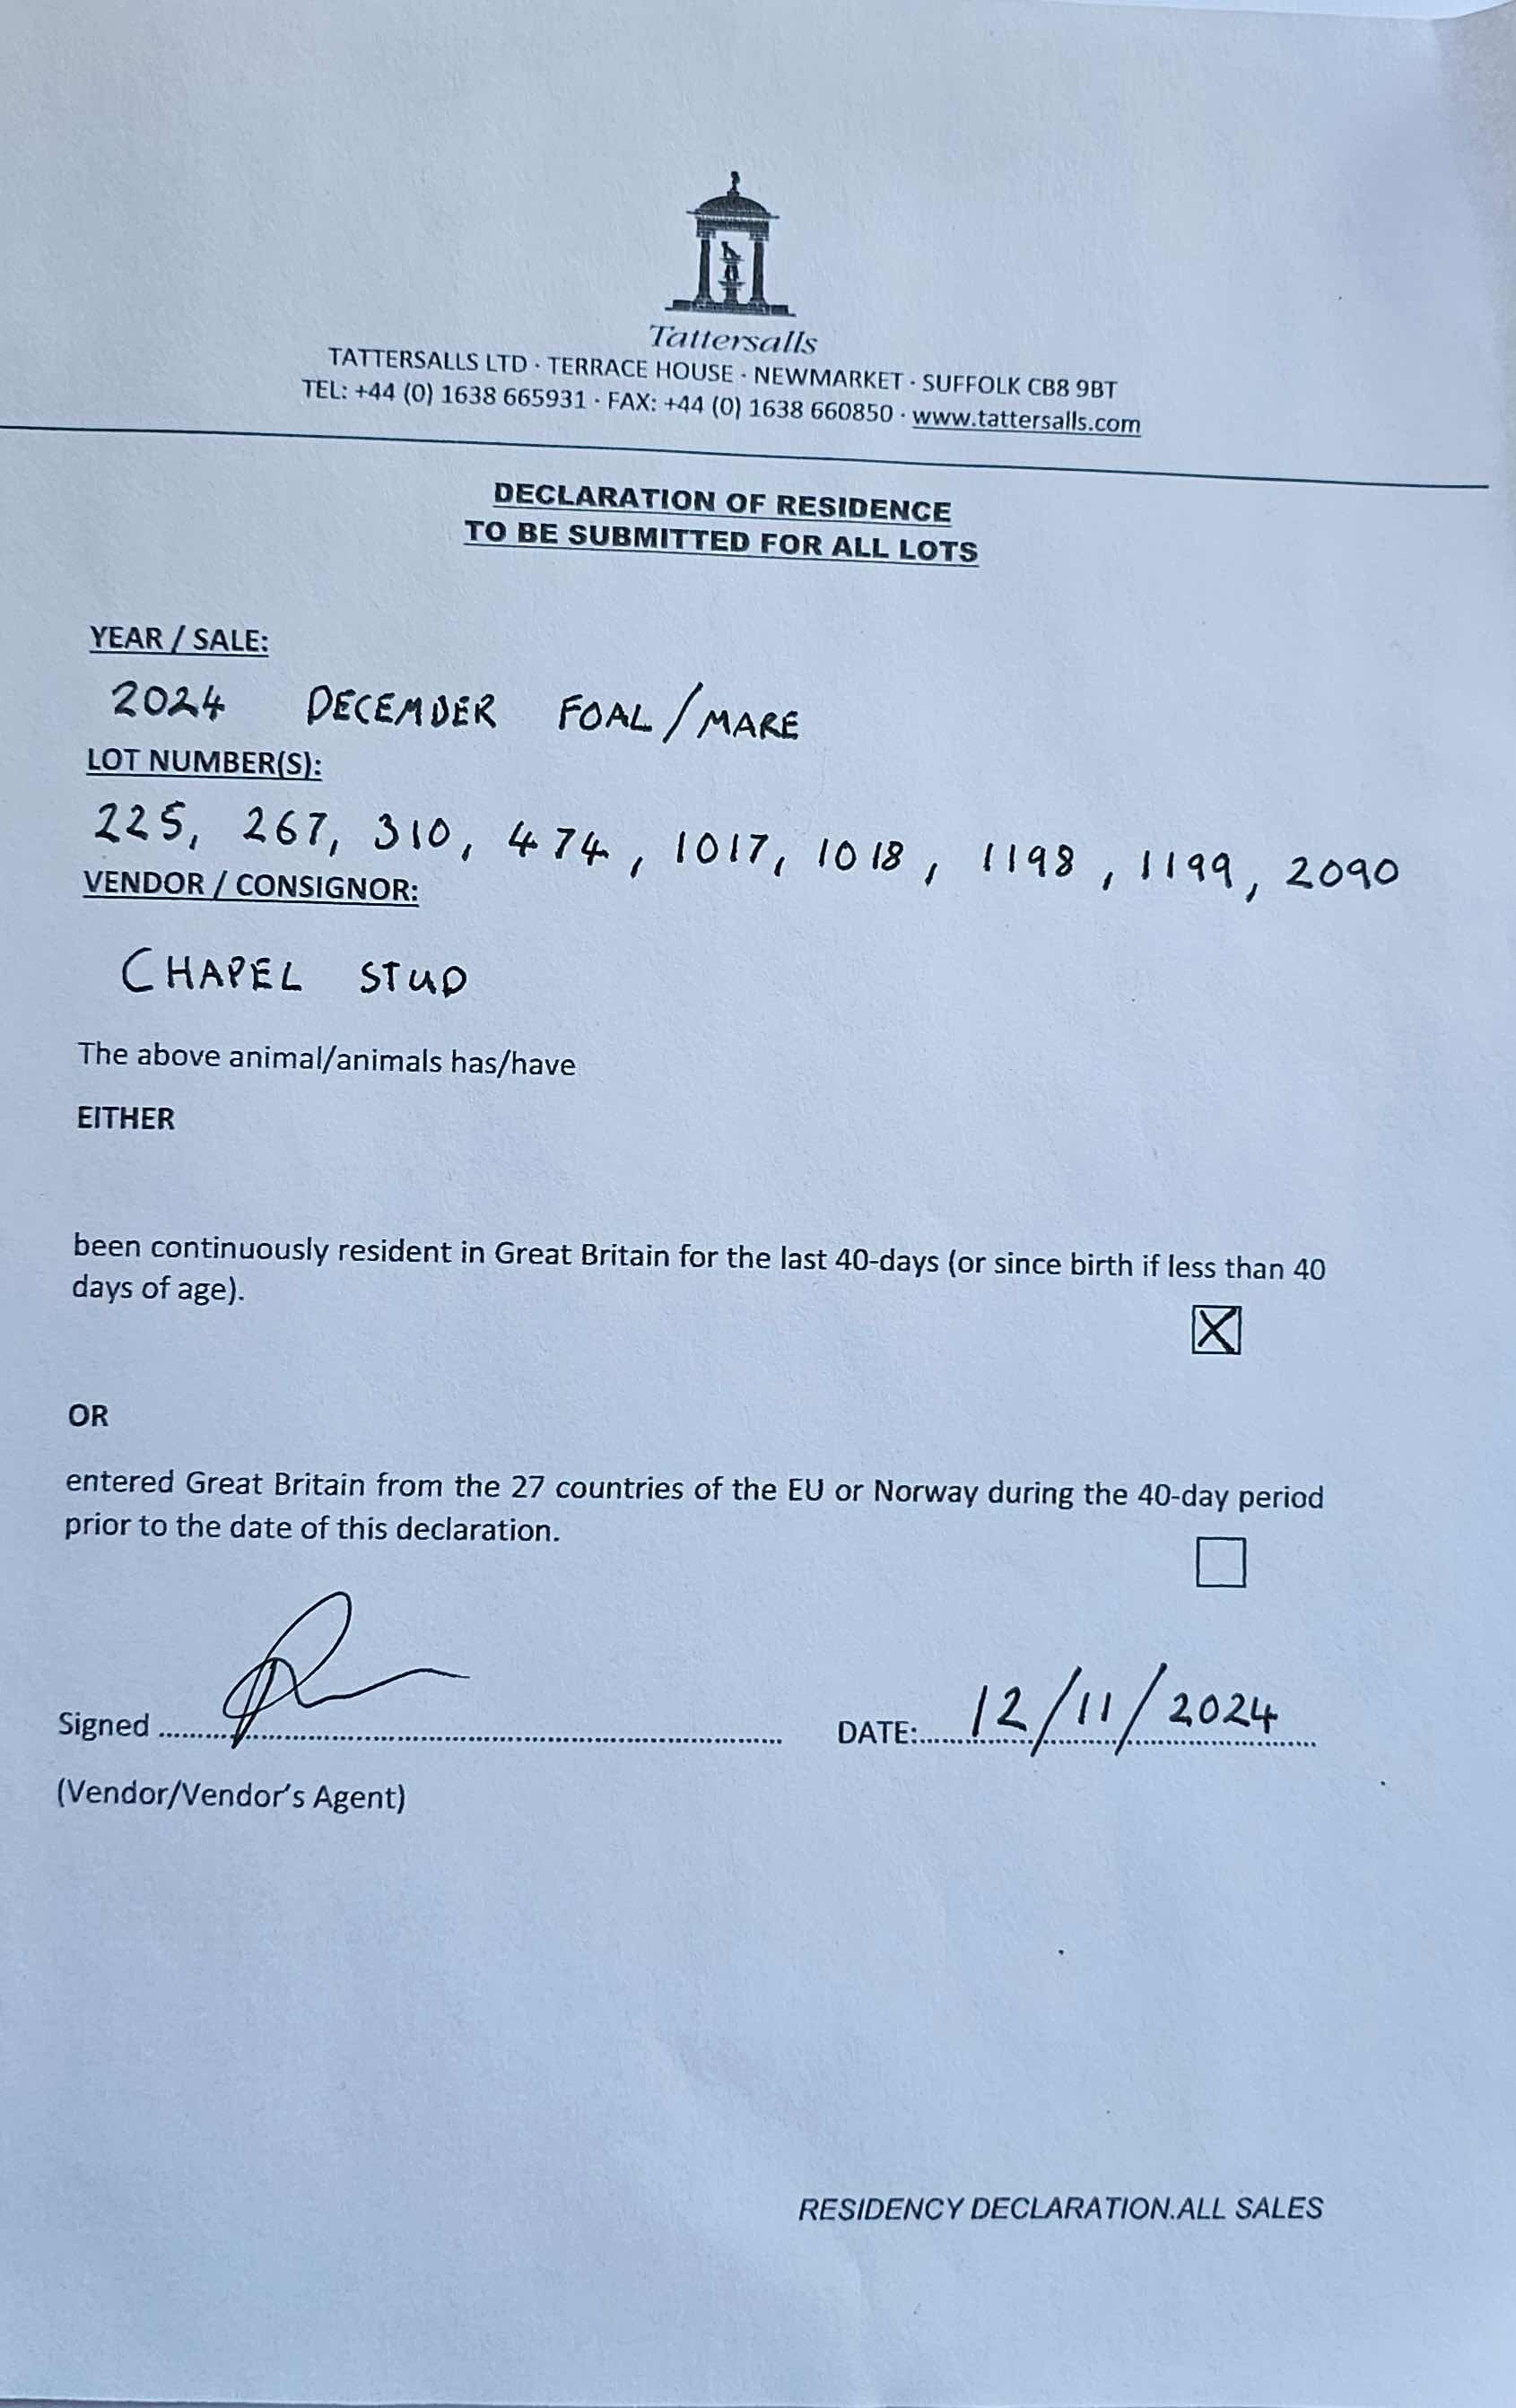 Tattersalls
TATTERSALLS LTD · TERRACE HOUSE · NEWMARKET · SUFFOLK CB8 9BT
TEL: +44 (0) 1638 665931 · FAX: +44 (0) 1638 660850 · www.tattersalls.com
DECLARATION OF RESIDENCE
TO BE SUBMITTED FOR ALL LOTS
YEAR / SALE:
2024 DECEMBER FOAL/MARE
LOT NUMBER(S):
225, 267, 310, 474, 1017, 1018, 1198, 1199, 2090
VENDOR / CONSIGNOR:
CHAPEL STUD
The above animal/animals has/have
EITHER
been continuously resident in Great Britain for the last 40-days (or since birth if less than 40
days of age).
X
OR
entered Great Britain from the 27 countries of the EU or Norway during the 40-day period
prior to the date of this declaration.
Signed ........ DATE: 12/11/2024
(Vendor/Vendor's Agent)
RESIDENCY DECLARATION.ALL SALES